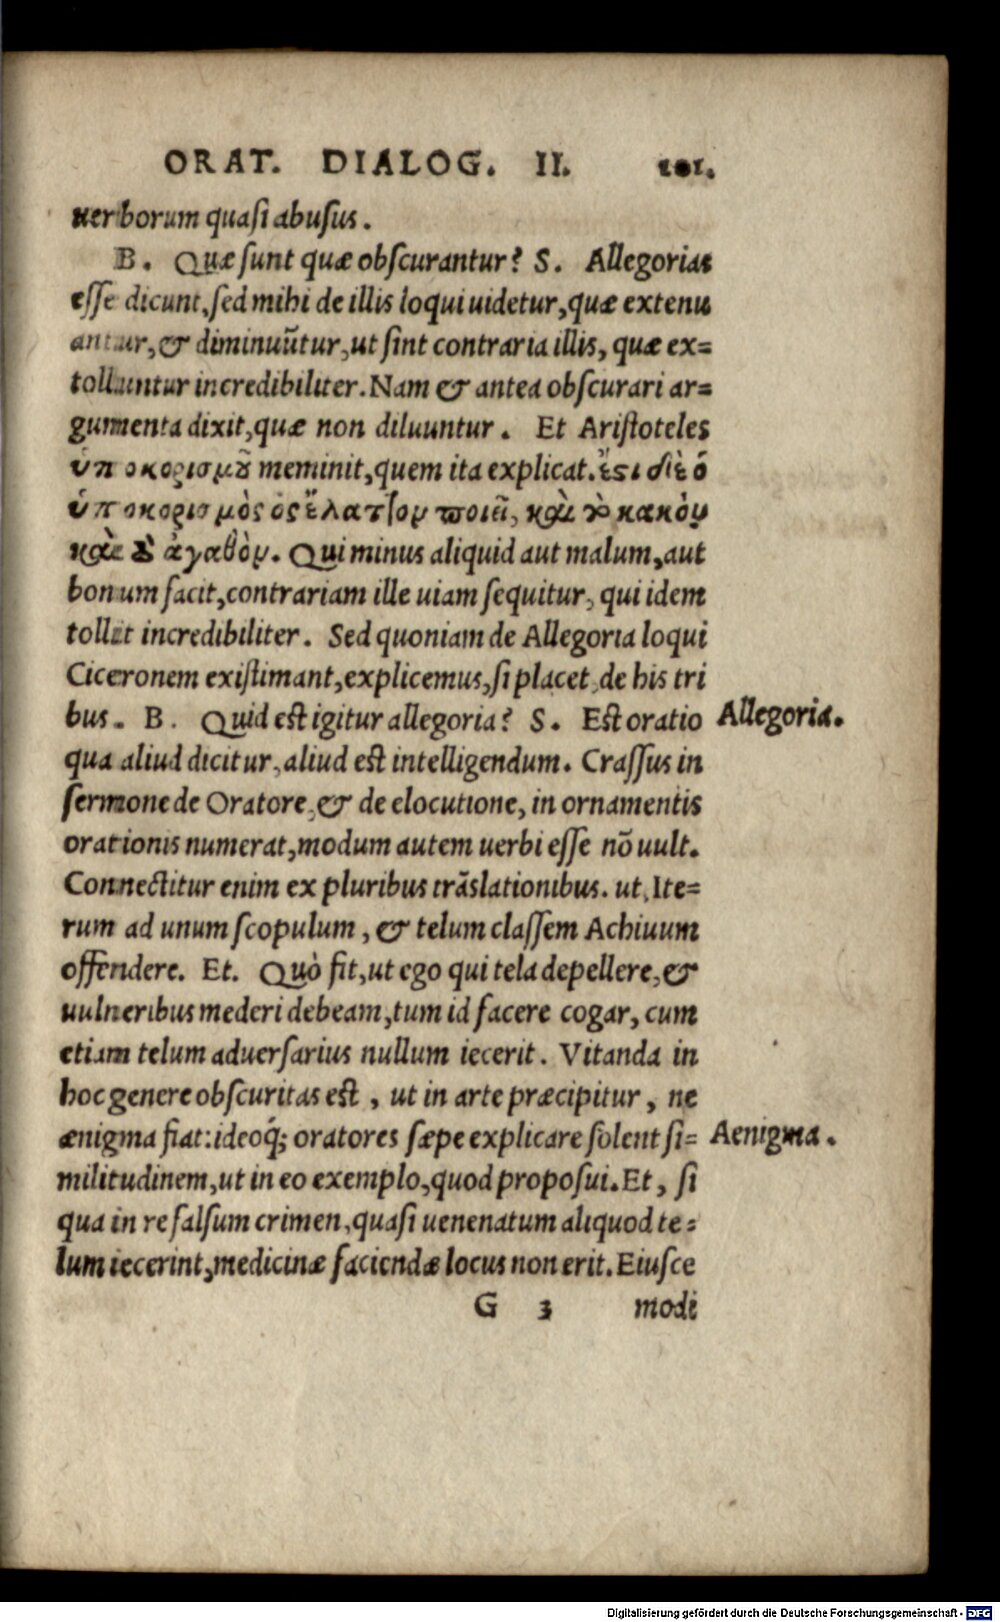 ORAT. DIALOG. II. 101.
uerborum quasi abusus.
B. Quæ sunt quæ obscurantur? S. Allegorias
esse dicunt, sed mihi de illis loqui uidetur, quæ extenu
antur, & diminuūtur, ut sint contraria illis, quæ ex=
tolluntur incredibiliter. Nam & antea obscurari ar=
gumenta dixit, quæ non diluuntur. Et Aristoteles
ὑποκορισμοῦ meminit, quem ita explicat. ἔσι δὲ ὁ
ὑποκορισμὸς ὃς ἔλαττον ποιεῖ, καὶ τὸ κακὸν
καὶ τὸ ἀγαθὸν. Qui minus aliquid aut malum, aut
bonum facit, contrariam ille uiam sequitur, qui idem
tollit incredibiliter. Sed quoniam de Allegoria loqui
Ciceronem existimant, explicemus, si placet, de his tri
bus. B. Quid est igitur allegoria? S. Est oratio
Allegoria.
qua aliud dicitur, aliud est intelligendum. Crassus in
sermone de Oratore, & de elocutione, in ornamentis
orationis numerat, modum autem uerbi esse nō uult.
Connectitur enim ex pluribus trāslationibus. ut, Ite=
rum ad unum scopulum, & telum classem Achiuum
offendere. Et. Quò fit, ut ego qui tela depellere, &
uulneribus mederi debeam, tum id facere cogar, cum
etiam telum aduersarius nullum iecerit. Vitanda in
hoc genere obscuritas est, ut in arte præcipitur, ne
ænigma fiat: ideoq; oratores sæpe explicare solent si=
Aenigma.
militudinem, ut in eo exemplo, quod proposui. Et, si
qua in re falsum crimen, quasi uenenatum aliquod te=
lum iecerint, medicinæ faciendæ locus non erit. Eiusce
G 3 modi
Digitalisierung gefördert durch die Deutsche Forschungsgemeinschaft - DFG